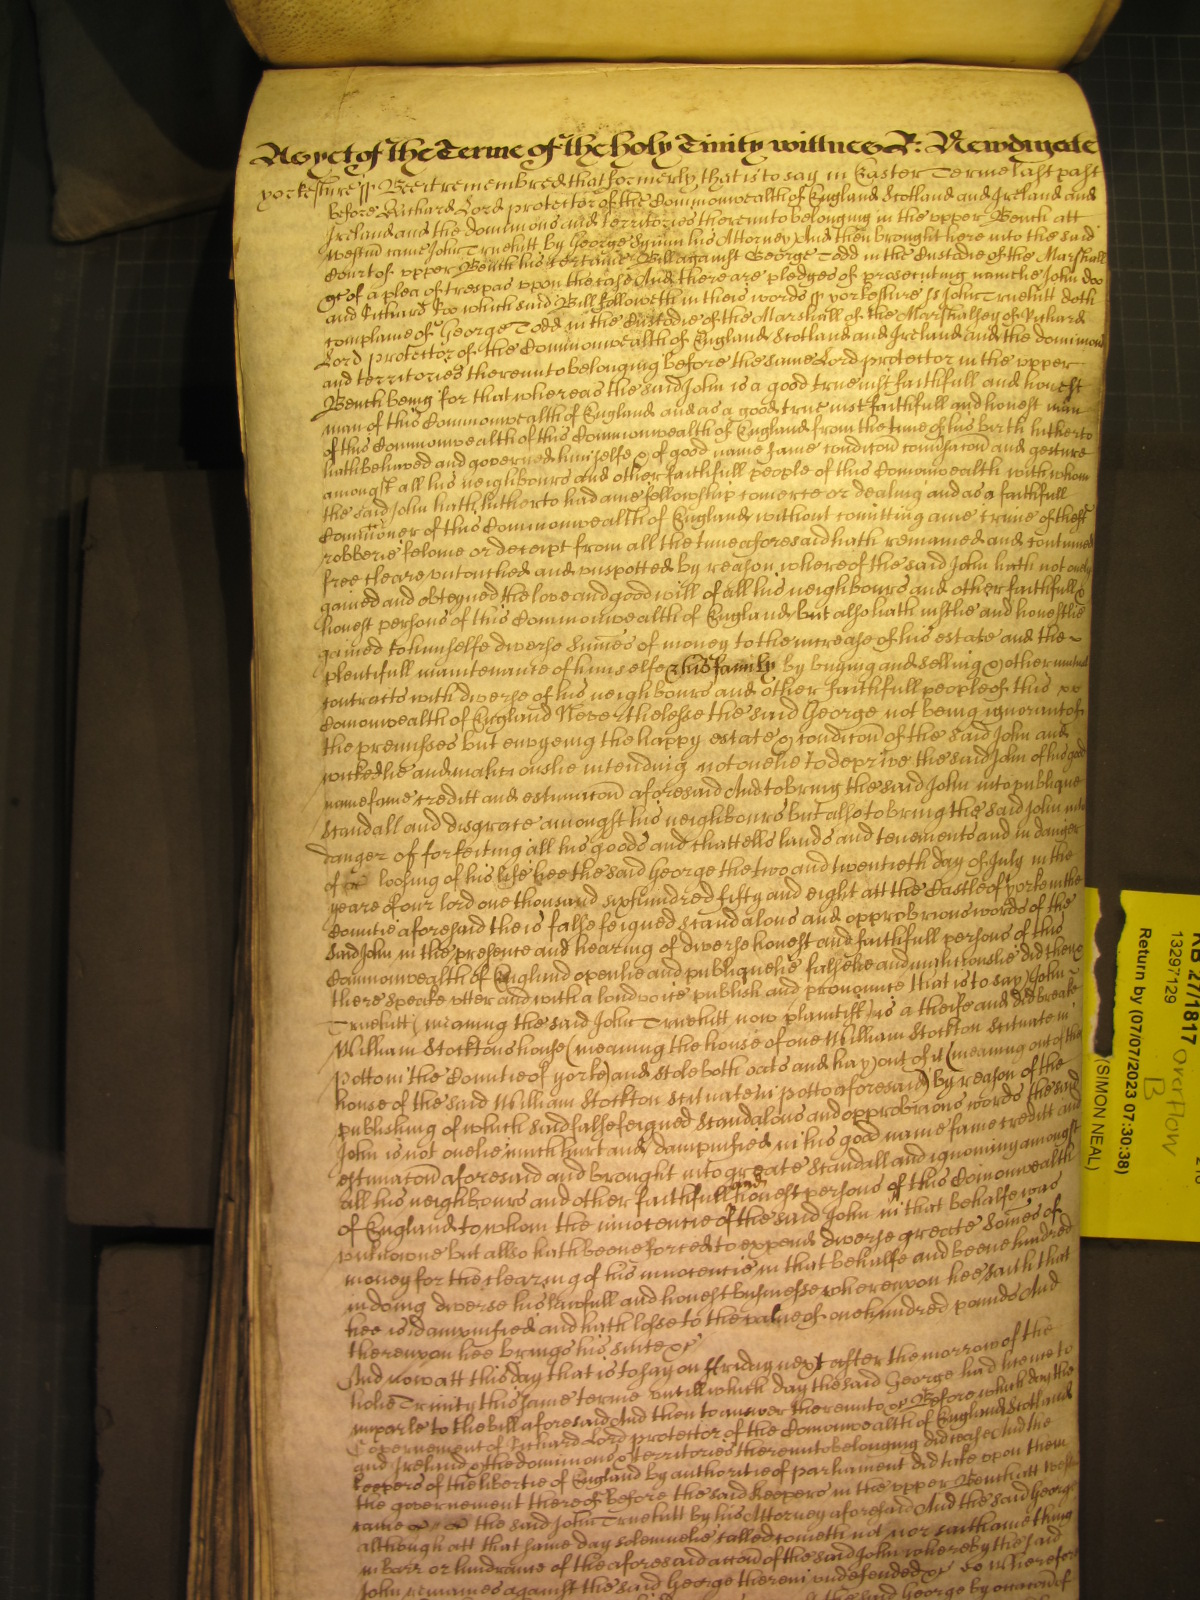 As yet of the Terme of the holy Trinity wittnes R: Newdigate
yorkeshire ss Bee it remembred that formerly, that is to say in Easter Terme last past
before Richard Lord protector of the Commonwealth of England Scotland and Ireland and
Ireland and the dominions and territories thereunto belonging in the upper Bench att
Westm came John Truehitt by George his Attorney And then brought here into the said
Court of upper Bench his certaine Bill against George Todd in the Custodie of the Marshall
&c of a plea of trespas upon the case And there are pledges of prosecuting namelie John Doo
and Richard Roo which said Bill followeth in theis words ss yorkeshire ss John Truehitt doth
complaine of George Todd in the Custodie of the Marshall of the Marshalsey of Richard
Lord protector of the Commonwealth of England Scotland and Ireland and the dominions
and territories thereunto belonging before the same Lord protector in the upper
Bench being for that whereas the said John is a good true iust faithfull and honest
man of this Commonwealth of England and as a good true iust faithfull and honest man
of this Commonwealth of this Commonwealth of England from the time of his birth hitherto
hath behaved and governed himselfe & of good name fame condicon convsacon and gesture
amongst all his neighbours and other faithfull people of this Comonwealth with whom
the said John hath hitherto had anie fellowship comerce or dealing and as a faithfull
Commoner of this Commonwealth of England without comitting anie crime of theft
robberie felonie or deceipt from all the time aforesaid hath remained and continued
free cleare untouched and unspotted by reason whereof the said John hath not onely
gained and obteyned the love and good will of all his neighbours and other faithfull &
honest persons of this Commonwealth of England but also hath iustlie and honestlie
gained to himselfe diverse sumes of money to the increase of his estate and the
plentifull maintenance of himselfe & his family by buying and selling & other mutuall
contracts with diverse of his neighbours and other faithfull people of this
Comonwealth of England Neverthelesse the said George not being ignorant of
the premisses but envyeing the happy estate & condicon of the said John and
wickedlie and maliciouslie intending not onelie to deprive the said John of his good
name fame creditt and estimacon aforesaid And to bring the said John into publique
scandall and disgrace amongst his neighbours but also to bring the said John into
danger of forfeiting all his goods and chattells lands and tenements and in danger
of loosing of his life hee the said George the two and twentieth day of July in the
yeare of our lord one thousand sixhundred fifty and eight att the Castle of yorke in the
Countie aforesaid theis false feigned scandalous and opprobrious words of the
said John in the presence and hearing of diverse honest and faithfull persons of this
Commonwealth of England openlie and publiquelie falselie and maliciouslie did then &
there speake utter and with a loud voice publish and pronounce that is to say John
Truehitt (meaning the said John Truehitt now plaintiff) is a theife and did breake
William Stocktons house (meaning the house of one William Stockton scituate in
Potto in the Countie of yorke) and stole both oats and hay out of it (meaning out of the
house of the said William Stockton scituate in Potto aforesaid) by reason of the
publishing of which said false feigned scandalous and opprobrious words the said
John is not onelie much hurt and dampnified in his good name fame creditt and
estimacon aforesaid and brought into greate scandall and ignominy amongst
all his neighbours and other faithfull and honest persons of this Comonwealth
of England to whom the innocencie of the said John in that behalfe was
unknowne but also hath beene forced to expend diverse greate somes of
money for the clearing of his innocencie in that behalfe and beene hindred
in doing diverse his lawfull and honest businesse whereupon hee saith that
hee is dampnified and hath losse to the value of one hundred pounds And
thereupon hee brings his suite &c
And now att this day that is to say on Friday next after the morrow of the
holie Trinity this same terme untill which day the said George had licence to
imparle to the bill aforesaid And then to answer thereunto &c Before which day the
Governement of Richard Lord protector of the Comonwealth of England Scotland
and Ireland & the dominions & territories thereunto belonging did cease And the
keepers of the libertie of England by authoritie of parliament did take upon them
the governement thereof before the said keepers in the upper Bench att Westm
came the said John Truehitt by his Attorney aforesaid And the said George
although att that same day solemnelie called cometh not nor saith anie thing
in barr or hindrance of the aforesaid accon of the said John whereby the said
John remaines against the said George therein undefended &c So Wherefore
the said George by occasion of
RB 27/1817
13297129
overflow
B
Return by (07/07/2023 07:30:38)
(SIMON NEAL)